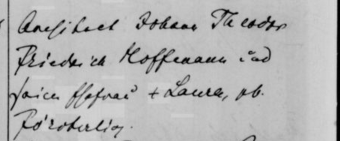 Architect Johann Theodor
Friedrich Hoffmann und
seiner Ehefrau + Laura, geb.
Försterling.